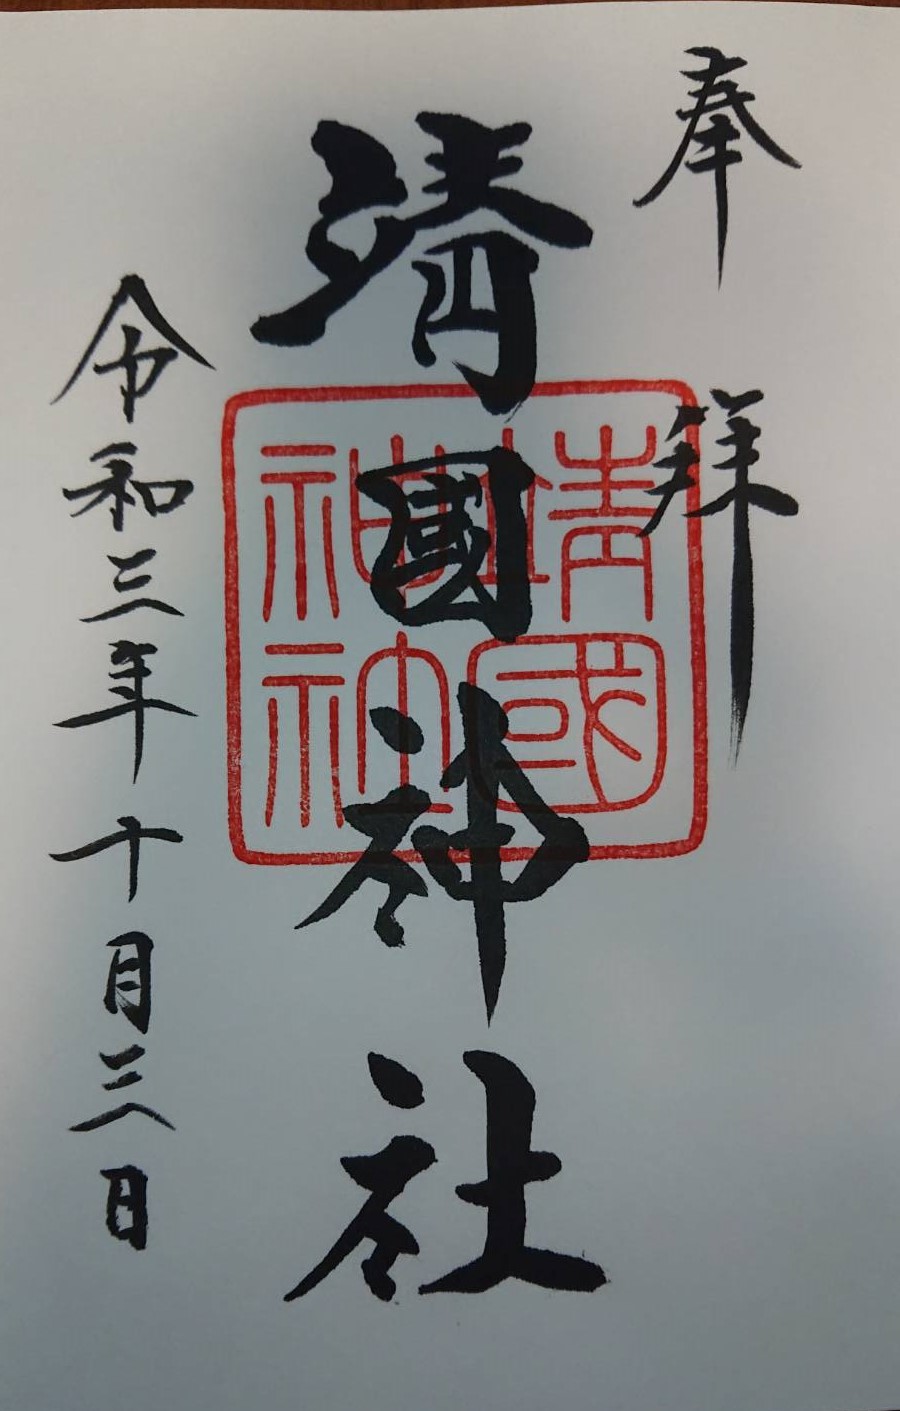 奉拝
靖國神社
靖國
神社
令和三年十月二八日